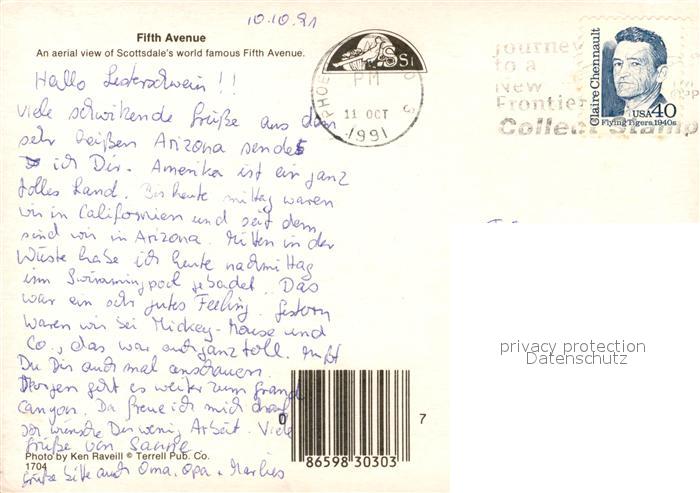 10.10.91
Fifth Avenue
An aerial view of Scottsdale's world famous Fifth Avenue.
Hallo Lederschwein!!
viele schwitzende Grüße aus dem
sehr heißen Arizona sende
ich Dir. Amerika ist ein ganz
tolles Land. Bis heute mittag waren
wir in Californien und seit dem
sind wir in Arizona. Mitten in der
Wüste habe ich heute nachmittag
im Swimmingpool gebadet. Das
war ein sehr gutes Feeling. Gestern
waren wir bei Mickey-Mouse und
Co., das war auch ganz toll. Mußt
Du Dir auch mal anschauen.
Morgen geht es weiter zum Grand
Canyon. Da freue ich mich drauf
wünsche Dir wenig Arbeit. Viele
Grüße von
Grüße bitte auch Oma, Opa + Marlies
Photo by Ken Raveill © Terrell Pub. Co.
1704
PHOE
PM
11 OCT
1991
journey
to a
New
Frontier
Collect Stamp
Claire Chennault
USA 40
Flying Tigers, 1940s
privacy protection
Datenschutz
0 86598 30303 7